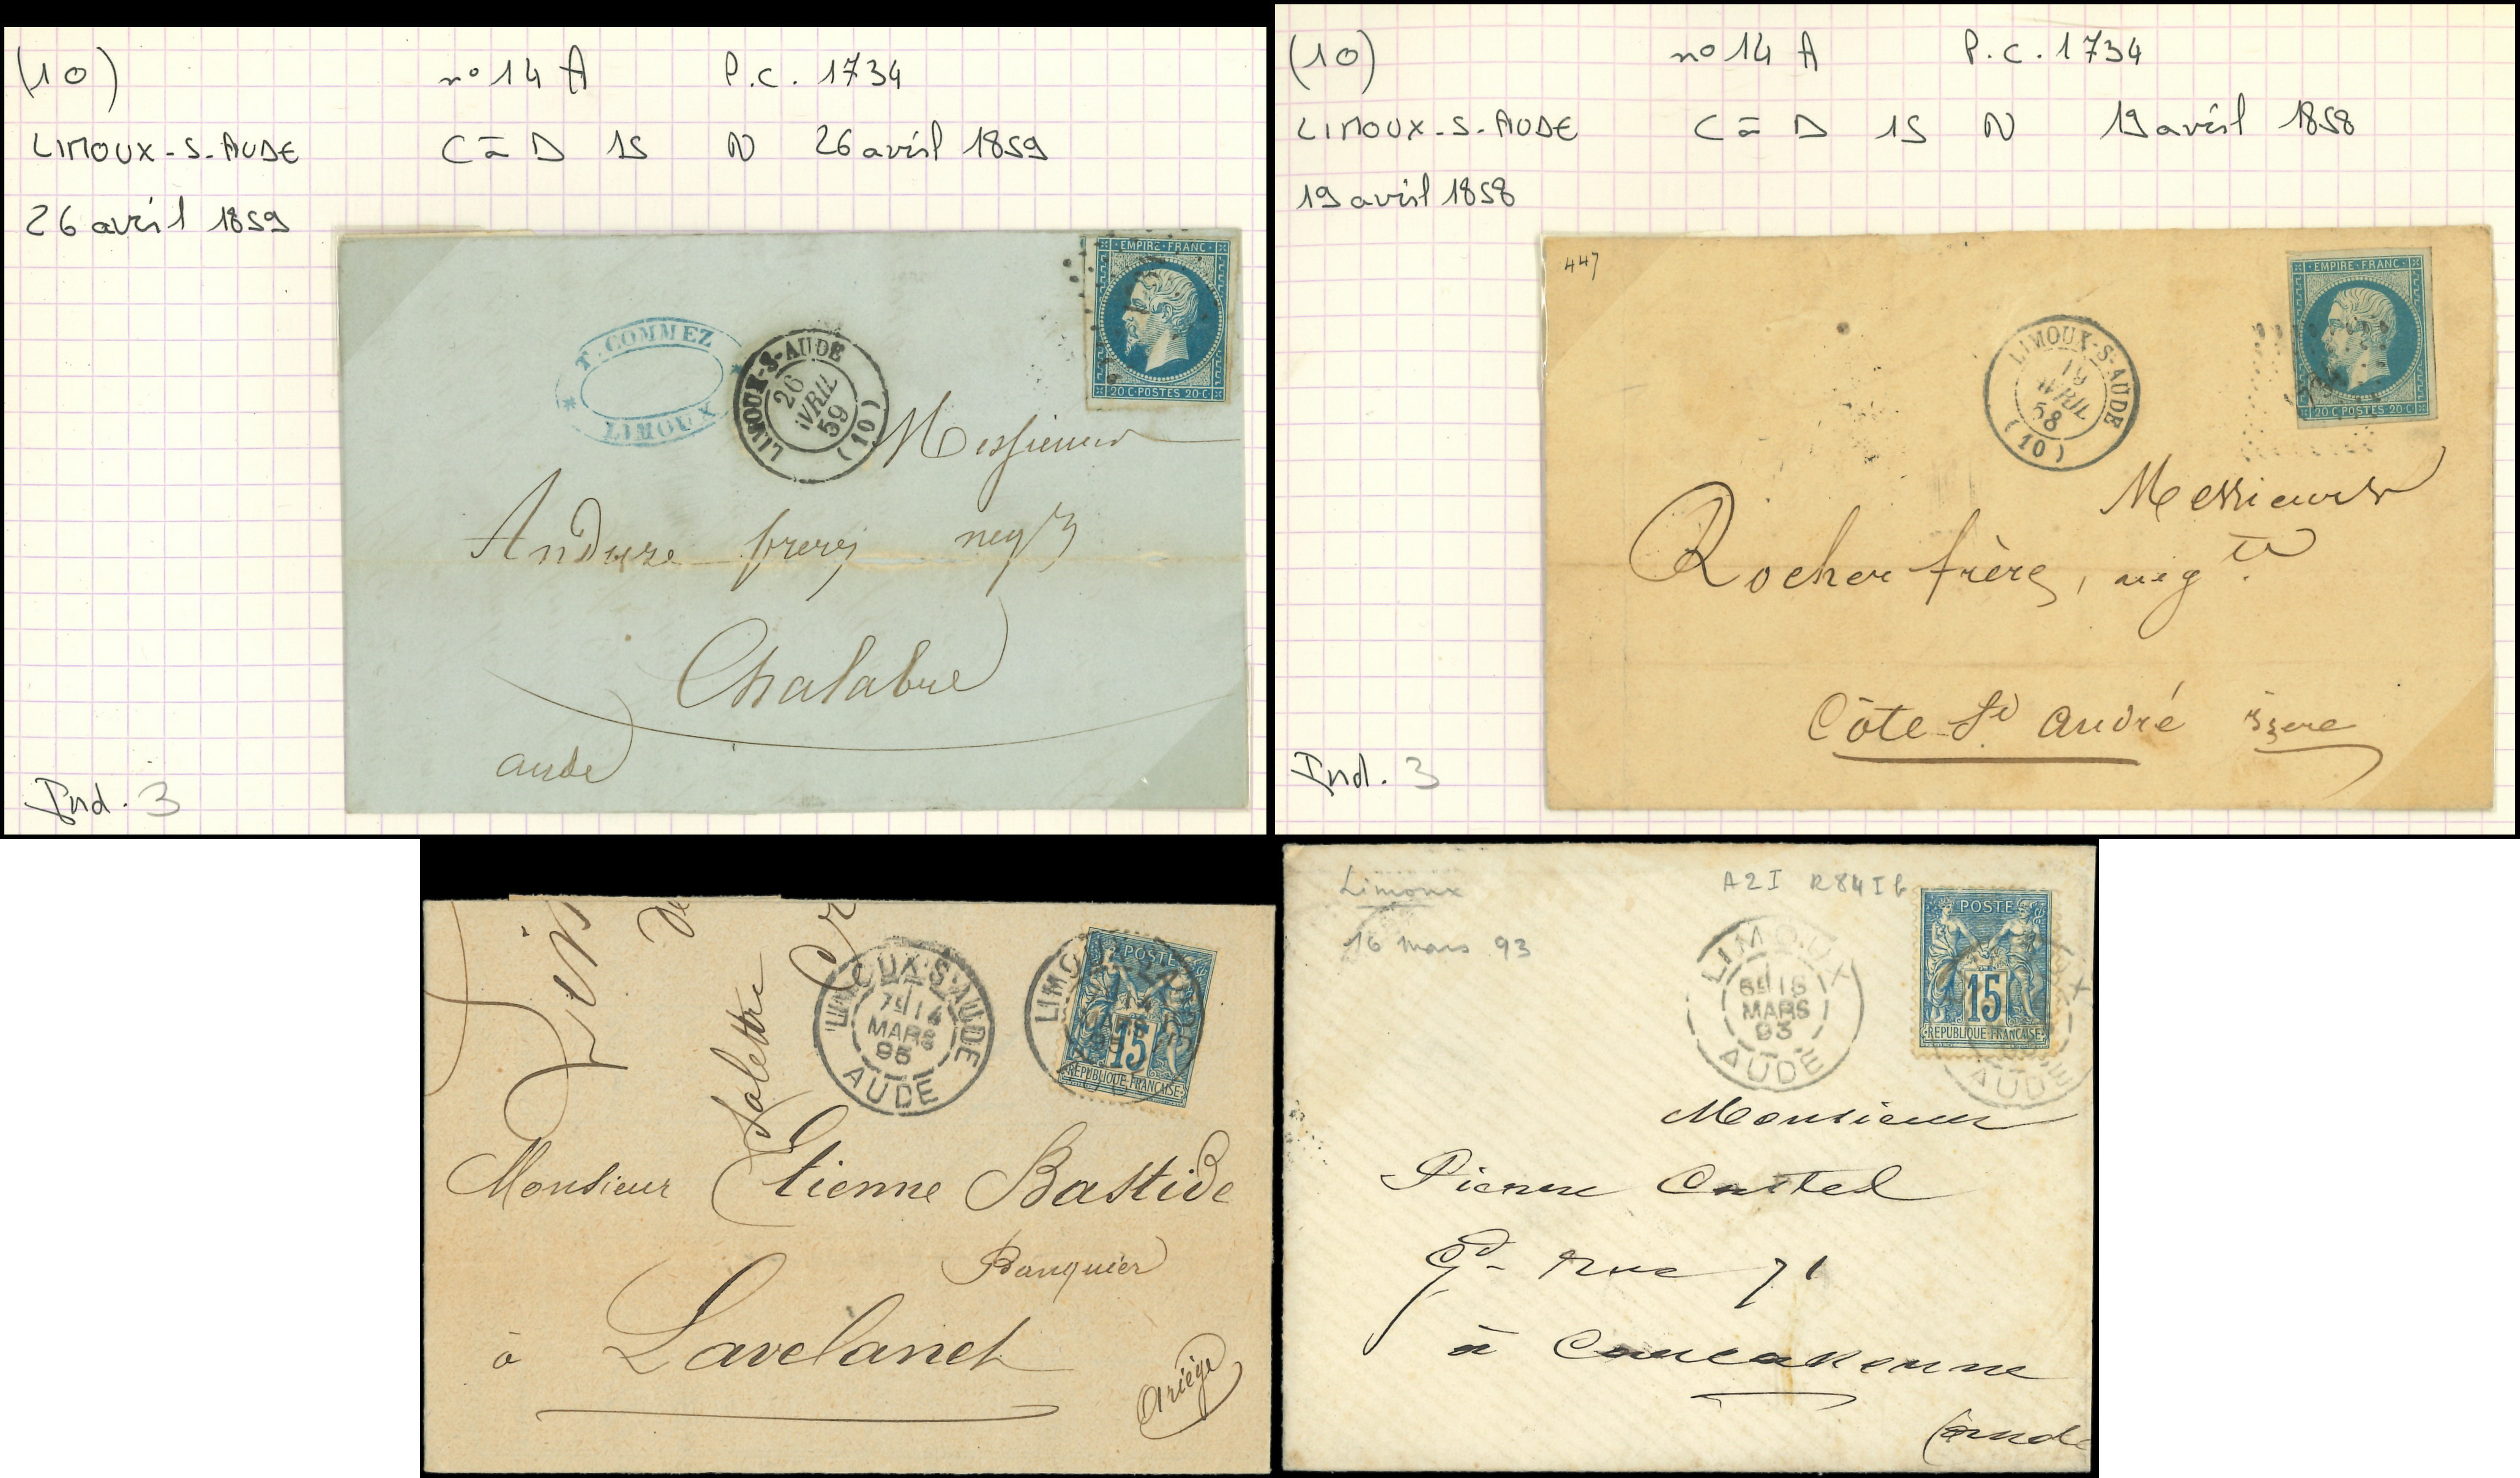 (10) n° 14 A P.C. 1734
LIMOUX-S-AUDE C à D 15 N 26 avril 1859
26 avril 1859
EMPIRE·FRANC·
T. COMMEZ
LIMOUX
LIMOUX-S-AUDE
26
AVRIL
59
(10)
20 C·POSTES 20·C·
Messieurs
Anduze freres
Chalabre
aude
Ind. 3
(10) n° 14 A P.C. 1734
LIMOUX-S-AUDE C à D 15 N 19 avril 1858
19 avril 1858
447
EMPIRE·FRANC·
LIMOUX-S-AUDE
19
AVRIL
58
(10)
20 C·POSTES 20·C·
Messieurs
Rocher frères, negts
Côte St André Isere
Ind. 3
LIMOUX-S-AUDE
7E 14
MARS
95
AUDE
POSTE
15
REPUBLIQUE FRANCAISE
Monsieur Etienne Bastide
Banquier
à Lavelanet
Ariège
Limoux A2I R84Ib
16 mars 93
LIMOUX
6E 16
MARS
93
AUDE
POSTE
15
REPUBLIQUE FRANCAISE
LIMOUX
AUDE
Monsieur
Pierre Castel
Gd rue 71
à Carcassonne
(aude